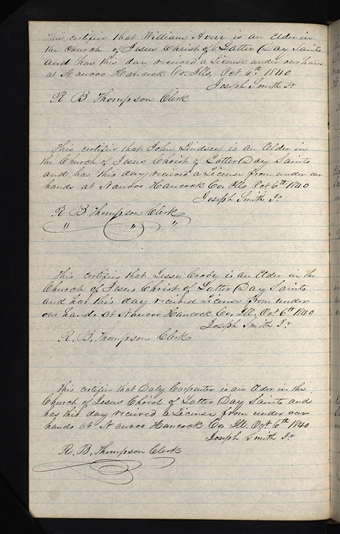 This certifies that William Avery is an Elder in
the Church of Jesus Christ of Latter Day Saints
and has this day received a License under our hands
at Nauvoo Hancock Co. Ills, Oct 6th 1840
Joseph Smith Jr
R. B. Thompson Clerk
This certifies that John Lindsey is an Elder in
the Church of Jesus Christ of Latter Day Saints
and has this day received a License from under our
hands at Nauvoo Hancock Co, Ills Oct 6th 1840
Joseph Smith Jr.
R. B. Thompson Clerk
" " "
This certifies that Jesse Crosby is an Elder in the
Church of Jesus Christ of Latter Day Saints
and has this day received License from under
our hands at Nauvoo Hancock Co, Ill, Oct 6th 1840
Joseph Smith Jr
R. B. Thompson Clerk
This certifies that Daty Carpenter is an Elder in the
Church of Jesus Christ of Latter Day Saints and
has this day received a License from under our
hands at Nauvoo Hancock Co, Ill. Oct 6th 1840
Joseph Smith Jr
R. B. Thompson Clerk